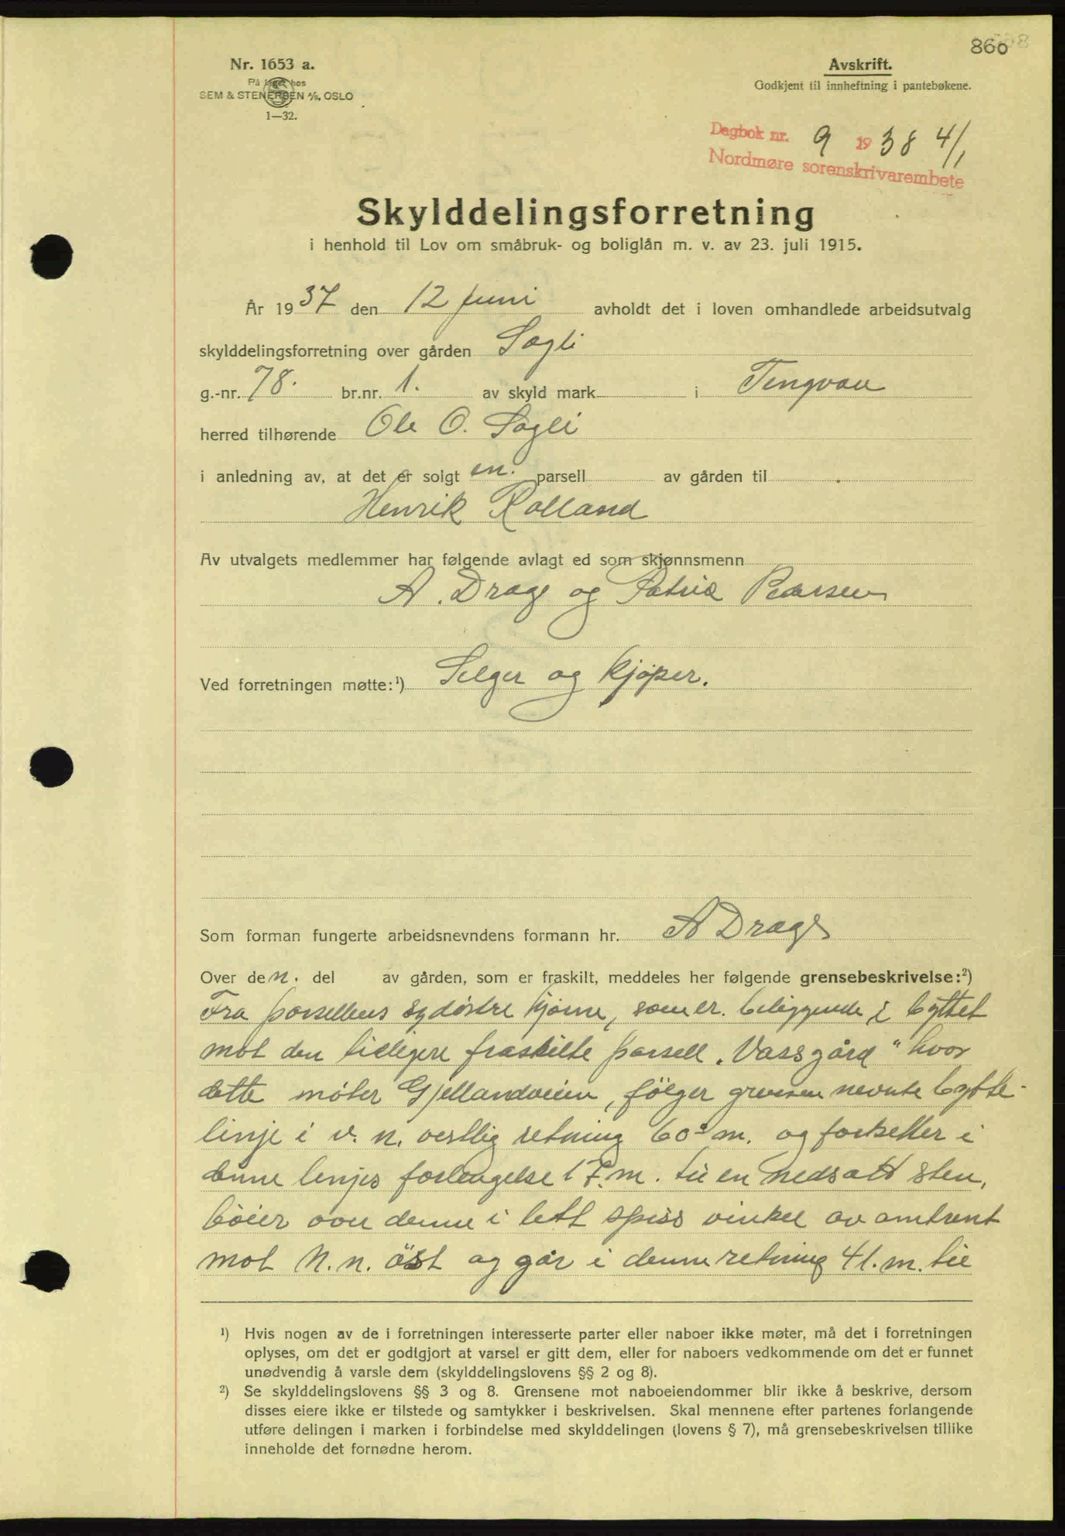 860
Nr. 1653 a.
På lager hos
SEM & STENERSEN A/S, OSLO
1—32.
Avskrift.
Godkjent til innheftning i pantebøkene.
Dagbok nr. 9 1938 4/1
Nordmøre sorenskrivarembete
Skylddelingsforretning
i henhold til Lov om småbruk- og boliglån m. v. av 23. juli 1915.
År 1937 den 12 Juni avholdt det i loven omhandlede arbeidsutvalg
skylddelingsforretning over gården Sogli
g.-nr. 78. br.nr. 1. av skyld mark i Tingvoll
herred tilhørende Ole O. Sogli
i anledning av, at det er solgt en. parsell av gården til
Henrik Rolland
Av utvalgets medlemmer har følgende avlagt ed som skjønnsmenn
A. Drage og Petric Pedersen
Ved forretningen møtte:¹) Selger og kjøper.
Som forman fungerte arbeidsnevndens formann hr. A Drage
Over den. del av gården, som er fraskilt, meddeles her følgende grensebeskrivelse:²)
Fra parsellens sydöstre hjörne, som er beliggende i byttet
mot den tidligere fraskilte parsell „Vassgård“ hvor
dette möter Gjellandveien, fölger grensen nevnte bytte-
linje i v. n. vestlig retning 60 m. og fortsetter i
denne linjes forlengelse 17. m. til en nedsatt sten,
böier over denne i lett spiss vinkel av omtrent
mot N. n. öst og går i denne retning 41. m. til
¹) Hvis nogen av de i forretningen interesserte parter eller naboer ikke møter, må det i forretningen
oplyses, om det er godtgjort at varsel er gitt dem, eller for naboers vedkommende om det er funnet
unødvendig å varsle dem (skylddelingslovens §§ 2 og 8).
²) Se skylddelingslovens §§ 3 og 8. Grensene mot naboeiendommer blir ikke å beskrive, dersom
disses eiere ikke er tilstede og samtykker i beskrivelsen. Skal mennene efter partenes forlangende
utføre delingen i marken i forbindelse med skylddelingen (lovens § 7), må grensebeskrivelsen tillike
inneholde det fornødne herom.